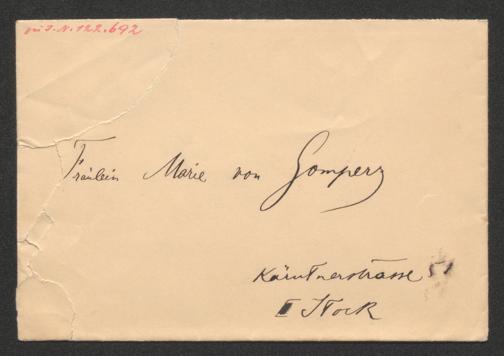 I.N. 122.692
Fräulein Marie von Gomperz
Kärntnerstrasse 51
II Stock